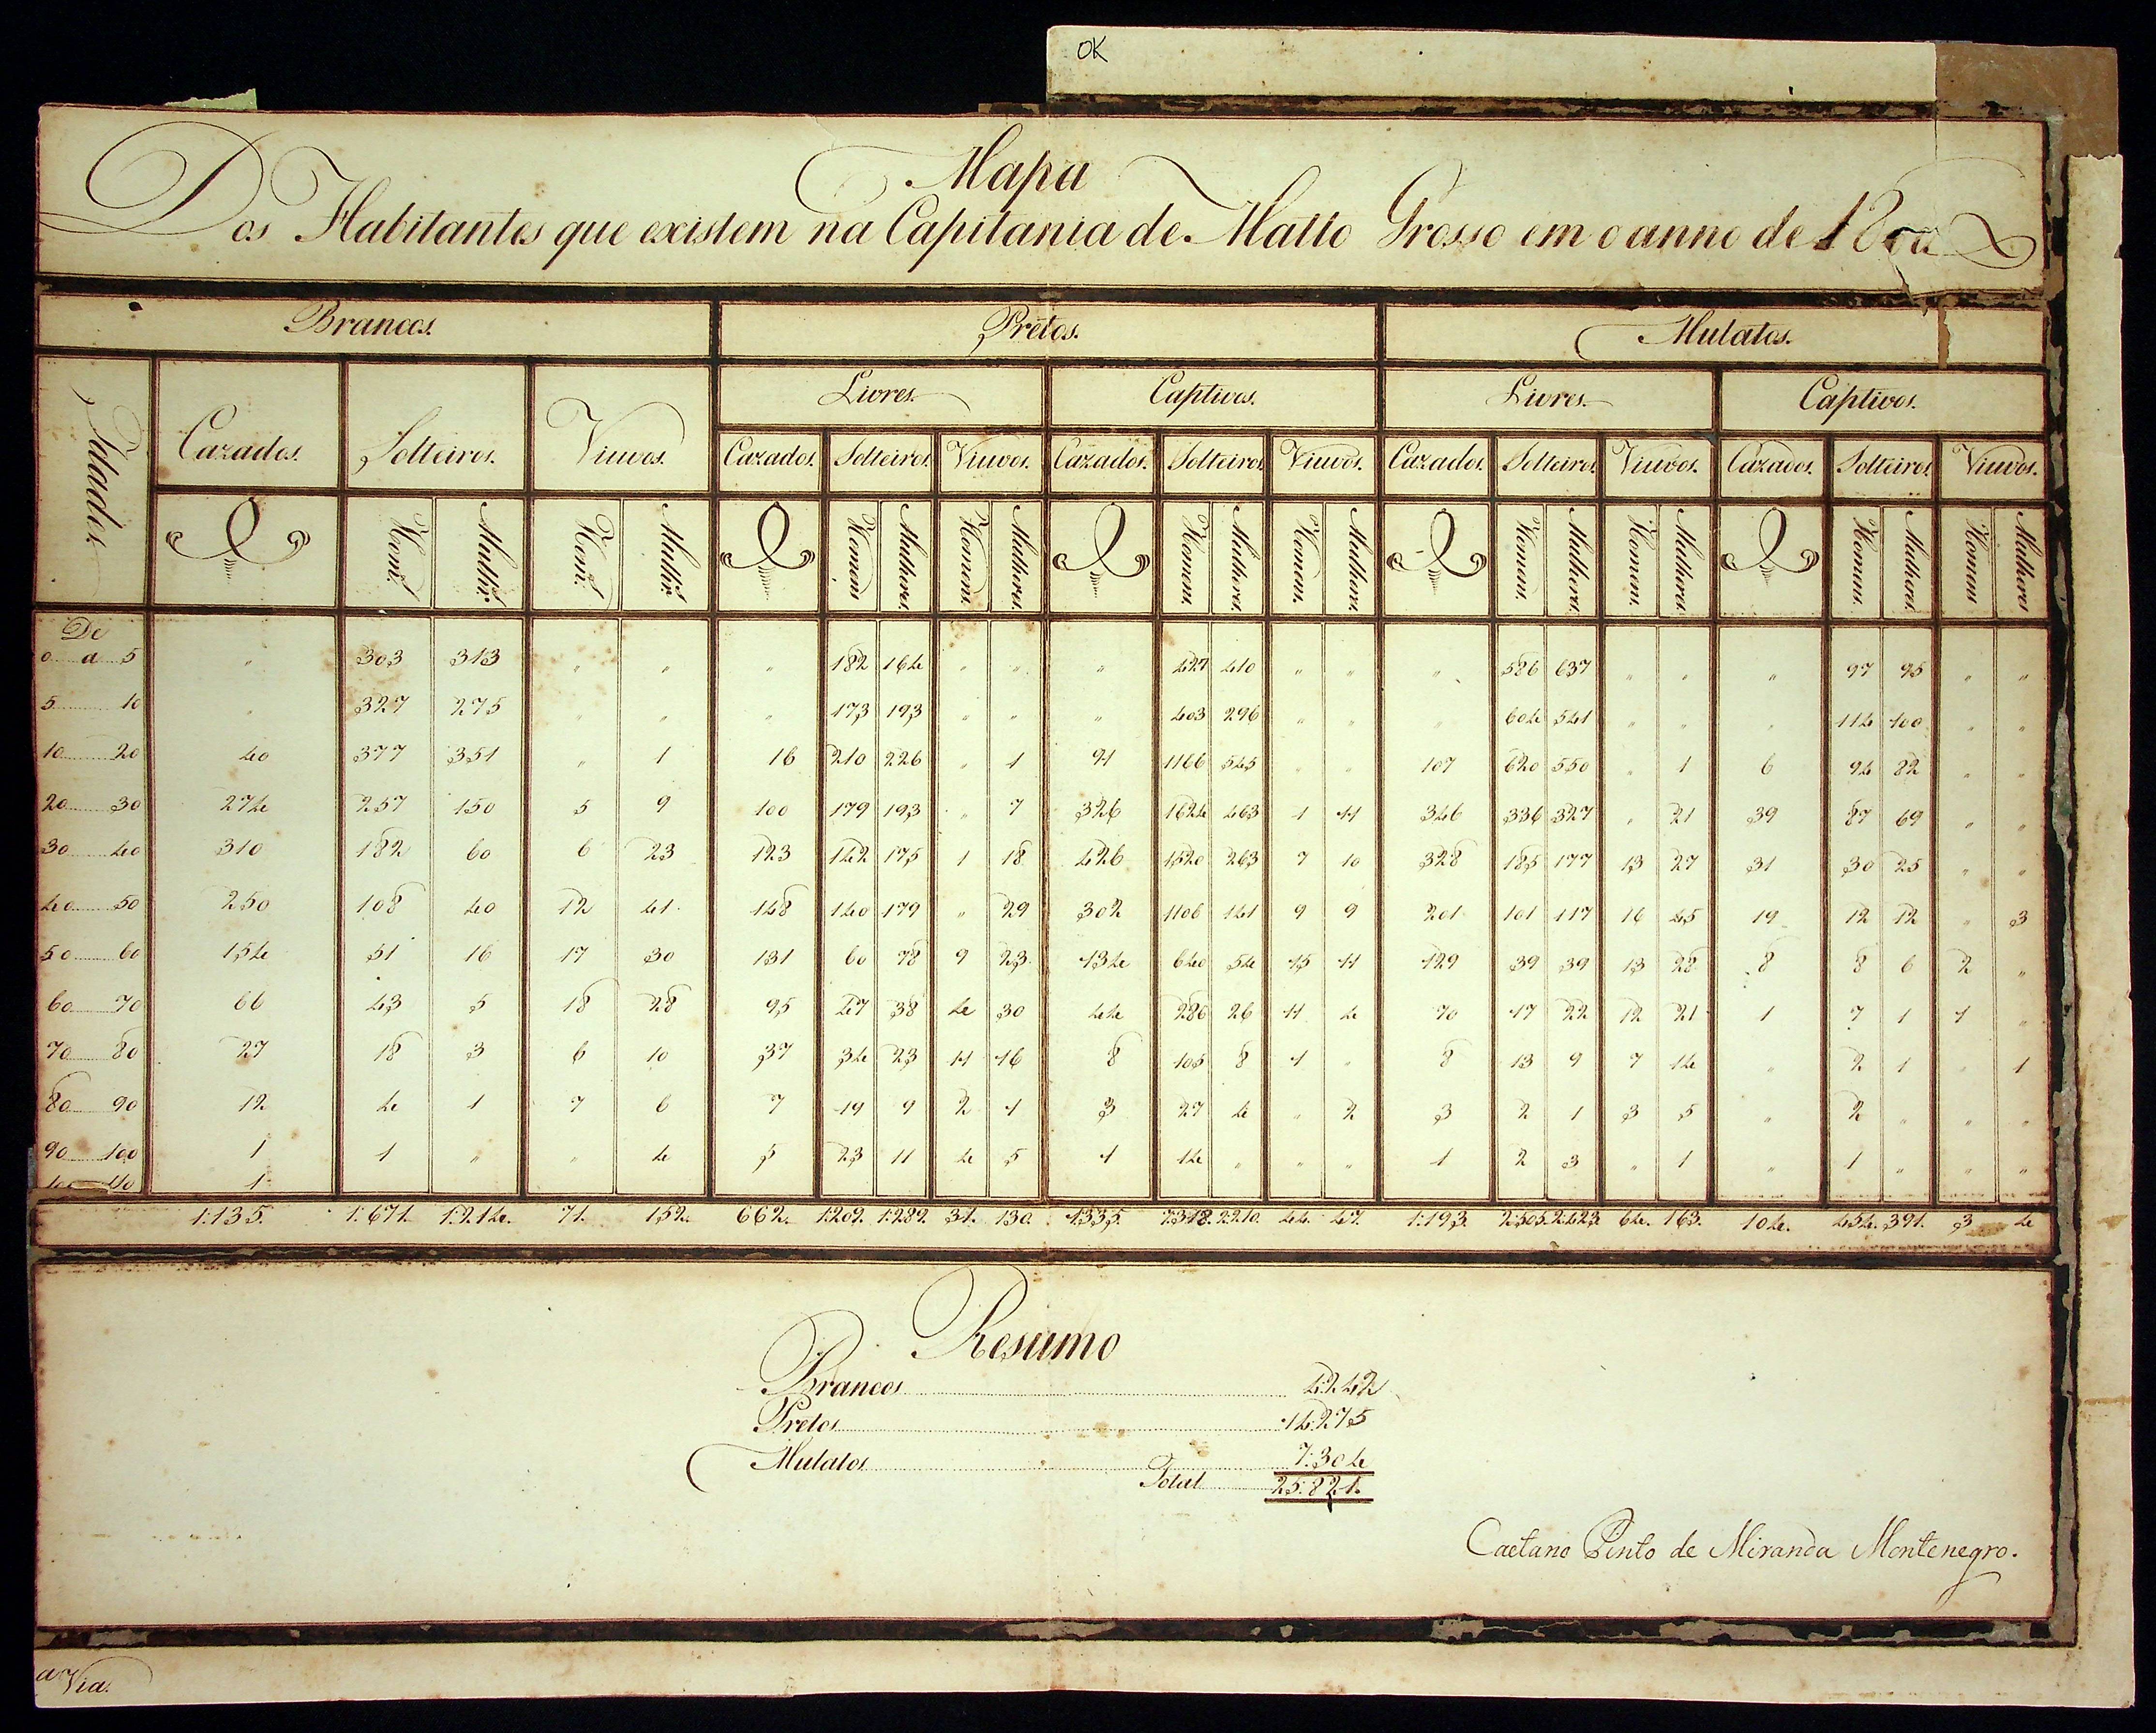 OK
Mapa
Dos Habitantes que existem na Capitania de Matto Grosso em o anno de 1800
Brancos. Pretos. Mulatos.
Livres. Captivos. Livres. Captivos.
Idades Cazados. Solteiros. Viuvos. Cazados. Solteiros. Viuvos. Cazados. Solteiros. Viuvos. Cazados. Solteiros. Viuvos. Cazados. Solteiros. Viuvos.
Hom.s Mulh.s Hom.s Mulh.s Homens Mulheres. Homens. Mulheres. Homens. Mulheres. Homens. Mulheres. Homens. Mulheres. Homens. Mulheres. Homens. Mulheres. Homens Mulheres
De
0 a 5 " 303 313 " " " 182 164 " " " 427 410 " " " 586 637 " " " 97 95 " "
5 10 " 327 275 " " " 173 193 " " " 403 296 " " " 604 541 " " " 114 100 " "
10 20 40 377 351 " 1 16 210 226 " 1 91 1166 545 " " 107 620 550 " 1 6 94 82 " "
20 30 274 257 150 5 9 100 179 193 " 7 326 1624 463 1 11 346 336 327 " 21 39 87 69 " "
30 40 310 182 60 6 23 123 142 175 1 18 426 1520 263 7 10 328 185 177 13 27 31 30 25 " "
40 50 250 108 40 12 41 148 140 179 " 29 302 1106 141 9 9 201 101 117 16 45 19 12 12 " 3
50 60 154 51 16 17 30 131 60 78 9 23 134 640 54 15 11 129 39 39 13 28 8 8 6 2 "
60 70 66 43 5 18 28 95 47 38 4 30 44 286 26 11 4 70 17 22 12 21 1 7 1 1 "
70 80 27 18 3 6 10 37 34 23 11 16 8 105 8 1 " 8 13 9 7 14 " 2 1 " 1
80 90 12 4 1 7 6 7 19 9 2 1 3 27 4 " 2 3 2 1 3 5 " 2 " " "
90 100 1 1 " " 4 5 23 11 4 5 1 14 " " " 1 2 3 " 1 " 1 " " "
100 110 1
1:135. 1:671. 1:214. 71. 152. 662. 1:209. 1:289. 31. 130. 1:335. 7:318. 2:210. 44. 47. 1:193. 2:505. 2:423. 64. 163. 104. 454. 391. 3 4
Resumo
Brancos 4:242
Pretos 14:275
Mulatos 7:304
Total 25:821.
Caetano Pinto de Miranda Montenegro.
a Via.